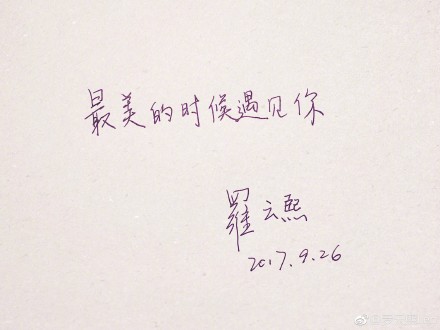 最美的时候遇见你
羅云熙
2017.9.26